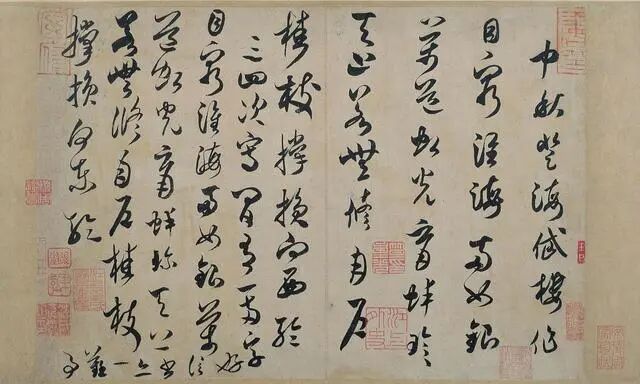 中秋登海岱樓作
目窮淮海兩如銀
萬道虹光育蚌珍
天上若無修月戶
桂枝撐損向西輪
三四次寫間有一兩字
目窮淮海兩如銀萬
道虹光育蚌珍天上
若無修月戶桂枝
撐損向東輪
好信書亦一難事